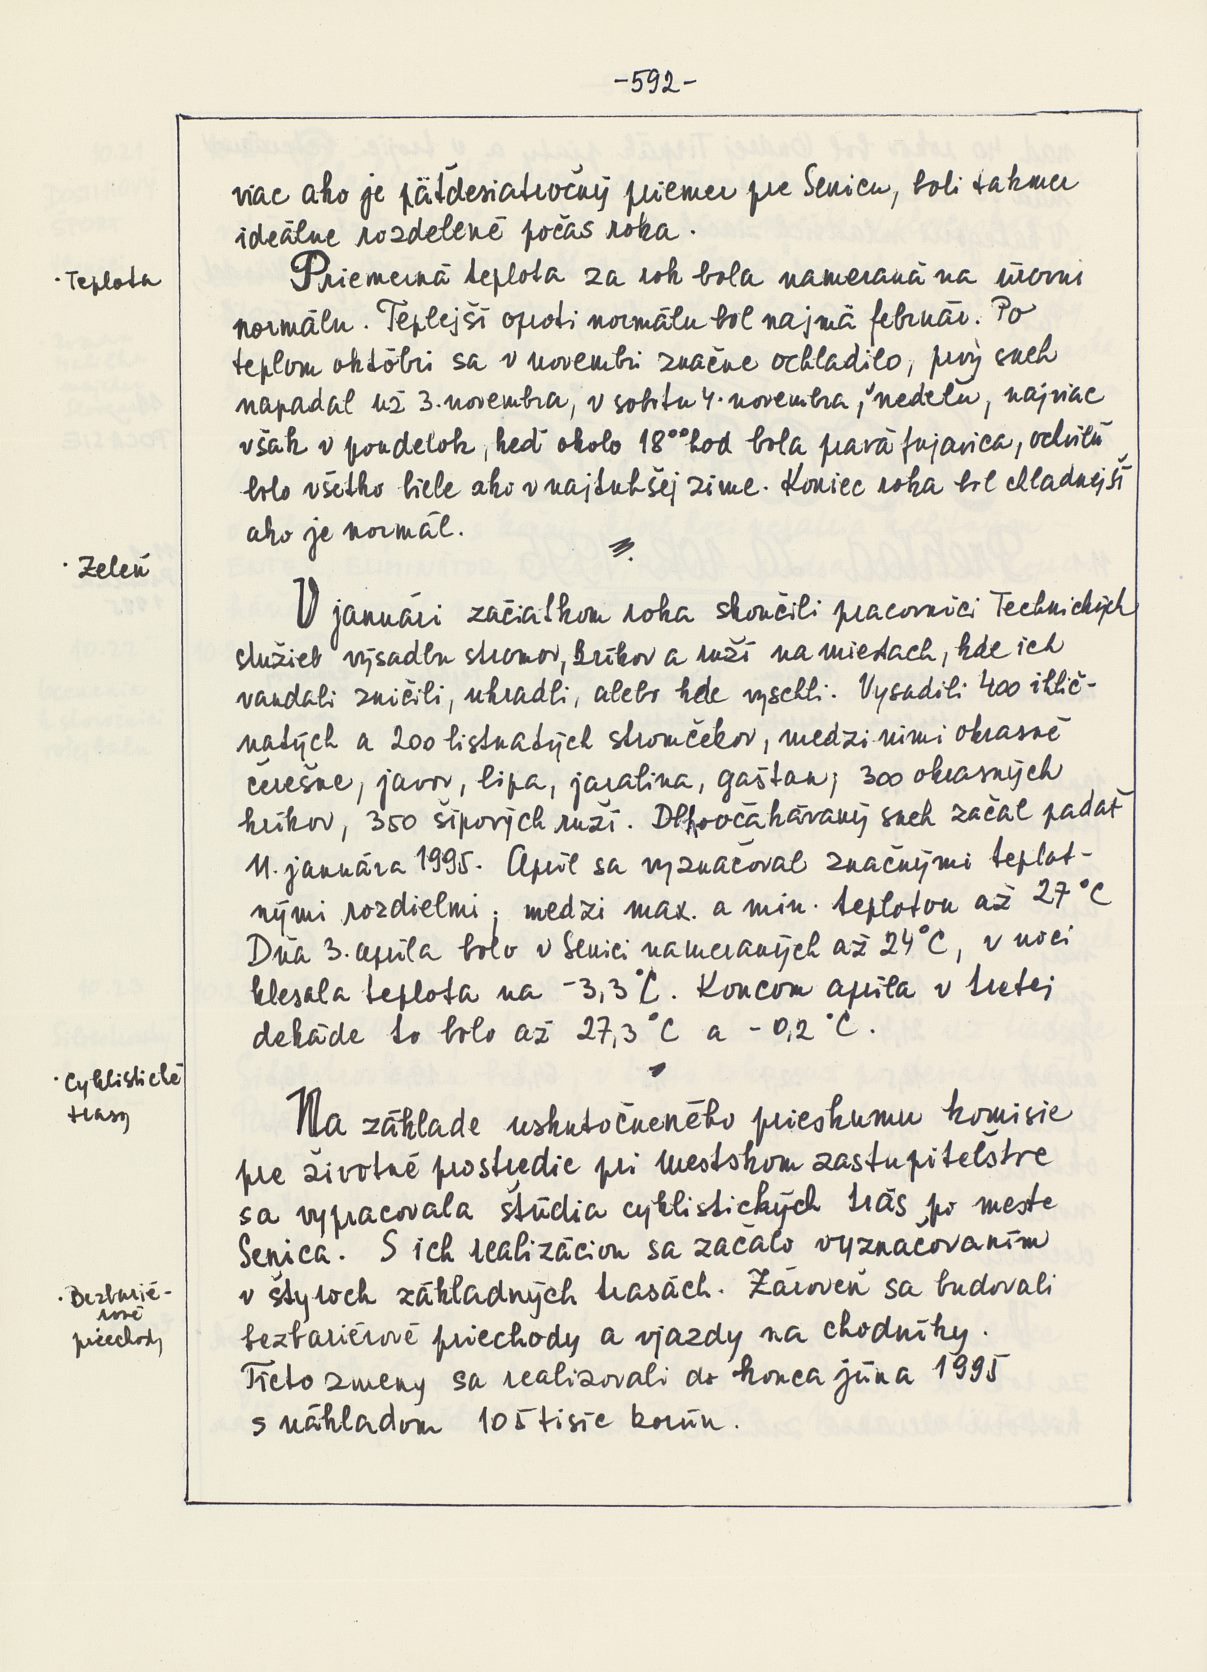 -592-
viac ako je päťdesiatročný priemer pre Senicu, boli takmer
ideálne rozdelené počas roka.
· Teplota
Priemerná teplota za rok bola nameraná na úrovni
normálu. Teplejší oproti normálu bol najmä február. Po
teplom októbri sa v novembri značne ochladilo, prvý sneh
napadal už 3. novembra, v sobotu 4. novembra, v nedeľu, najviac
však v pondelok, keď okolo 18⁰⁰ hod bola pravá fujavica, odchvíľu
bolo všetko biele ako v najtuhšej zime. Koniec roka bol chladnejší
ako je normál.
· Zeleň
V januári začiatkom roka skončili pracovníci Technických
služieb výsadbu stromov, kríkov a ruží na miestach, kde ich
vandali zničili, ukradli, alebo kde vyschli. Vysadili 400 ihlič-
natých a 200 listnatých stromčekov, medzi nimi okrasné
čerešne, javor, lipa, jaralina, gaštan; 300 okrasných
kríkov, 350 šípových ruží. Dlhoočakávaný sneh začal padať
11. januára 1995. Apríl sa vyznačoval značnými teplot-
nými rozdielmi; medzi max. a min. teplotou až 27°C
Dňa 3. apríla bolo v Senici nameraných až 24°C, v noci
klesala teplota na -3,3°C. Koncom apríla v tretej
dekáde to bolo až 27,3°C a -0,2°C.
· Cyklistické
trasy
Na základe uskutočneného prieskumu komisie
pre životné prostredie pri mestskom zastupiteľstve
sa vypracovala štúdia cyklistických trás po meste
Senica. S ich realizáciou sa začalo vyznačovaním
v štyroch základných trasách. Zároveň sa budovali
· Bezbarié-
rové
priechody
bezbariérové priechody a vjazdy na chodníky.
Tieto zmeny sa realizovali do konca júna 1995
s nákladom 105 tisíc korún.